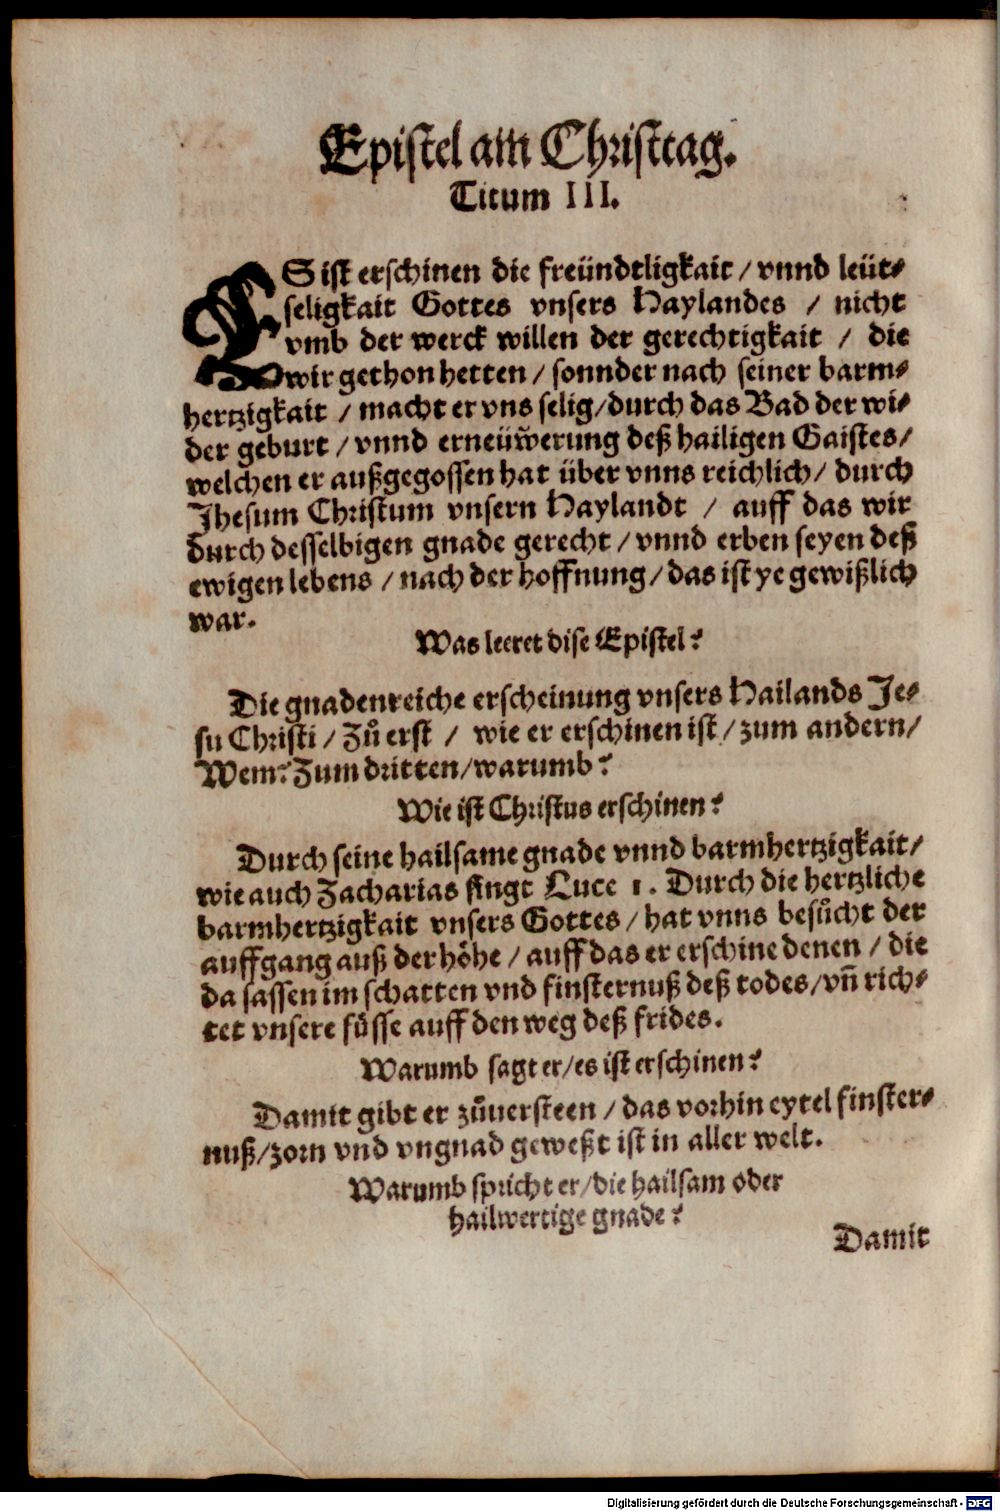 Epistel am Christtag.
Titum III.
ES ist erschinen die freündtligkait / vnnd leüt-
seligkait Gottes vnsers Haylandes / nicht
vmb der werck willen der gerechtigkait / die
wir gethon hetten / sonnder nach seiner barm-
hertzigkait / macht er vns selig / durch das Bad der wi-
der geburt / vnnd erneüwerung deß hailigen Gaistes /
welchen er außgegossen hat über vnns reichlich / durch
Jhesum Christum vnsern Haylandt / auff das wir
durch desselbigen gnade gerecht / vnnd erben seyen deß
ewigen lebens / nach der hoffnung / das ist ye gewißlich
war.
Was leeret dise Epistel?
Die gnadenreiche erscheinung vnsers Hailands Je-
su Christi / Zů erst / wie er erschinen ist / zum andern /
Wem? Zum dritten / warumb?
Wie ist Christus erschinen?
Durch seine hailsame gnade vnnd barmhertzigkait /
wie auch Zacharias singt Luce 1. Durch die hertzliche
barmhertzigkait vnsers Gottes / hat vnns besůcht der
auffgang auß der höhe / auff das er erschine denen / die
da sassen im schatten vnd finsternuß deß todes / vñ rich-
tet vnsere füsse auff den weg deß frides.
Warumb sagt er / es ist erschinen?
Damit gibt er zůuersteen / das vorhin eytel finster-
nuß / zorn vnd vngnad geweßt ist in aller welt.
Warumb spricht er / die hailsam oder
hailwertige gnade?
Damit
Digitalisierung gefördert durch die Deutsche Forschungsgemeinschaft - DFG